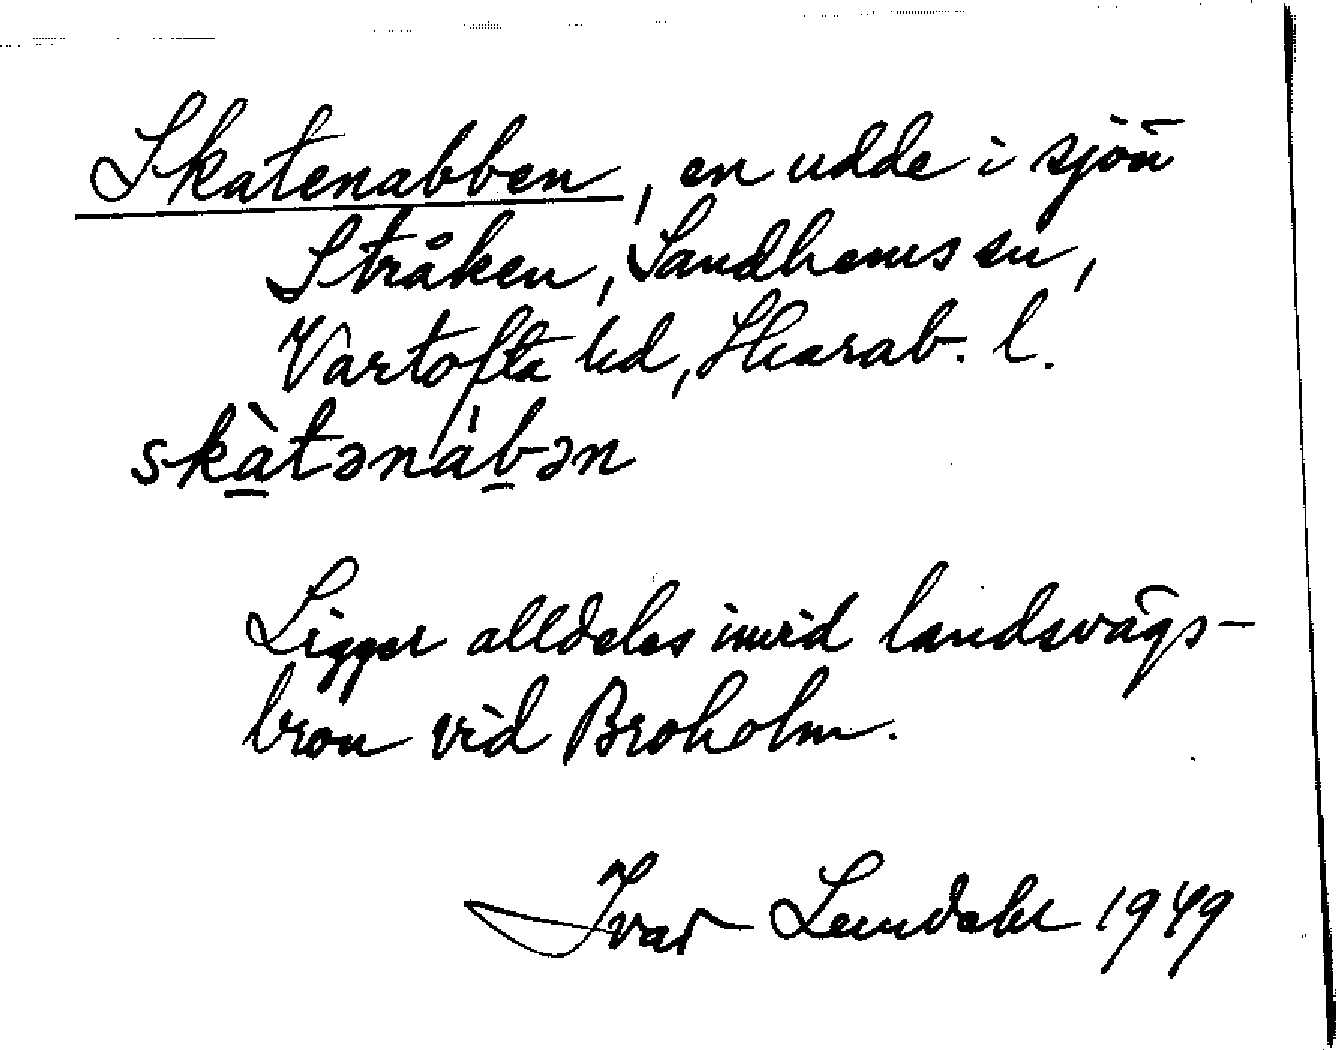 Skatenabben, en udde i sjön
Stråken, Sandhems sn,
Vartofta hd, Skarab. l.
skàtənábən
Ligger alldeles invid landsvägs-
bron vid Broholm.
Ivar Lundahl 1949